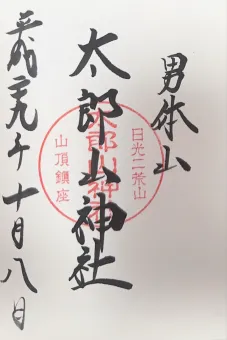 男体山
太郎山神社
平成二九年十月八日
日光二荒山
太郎山神社
山頂鎮座